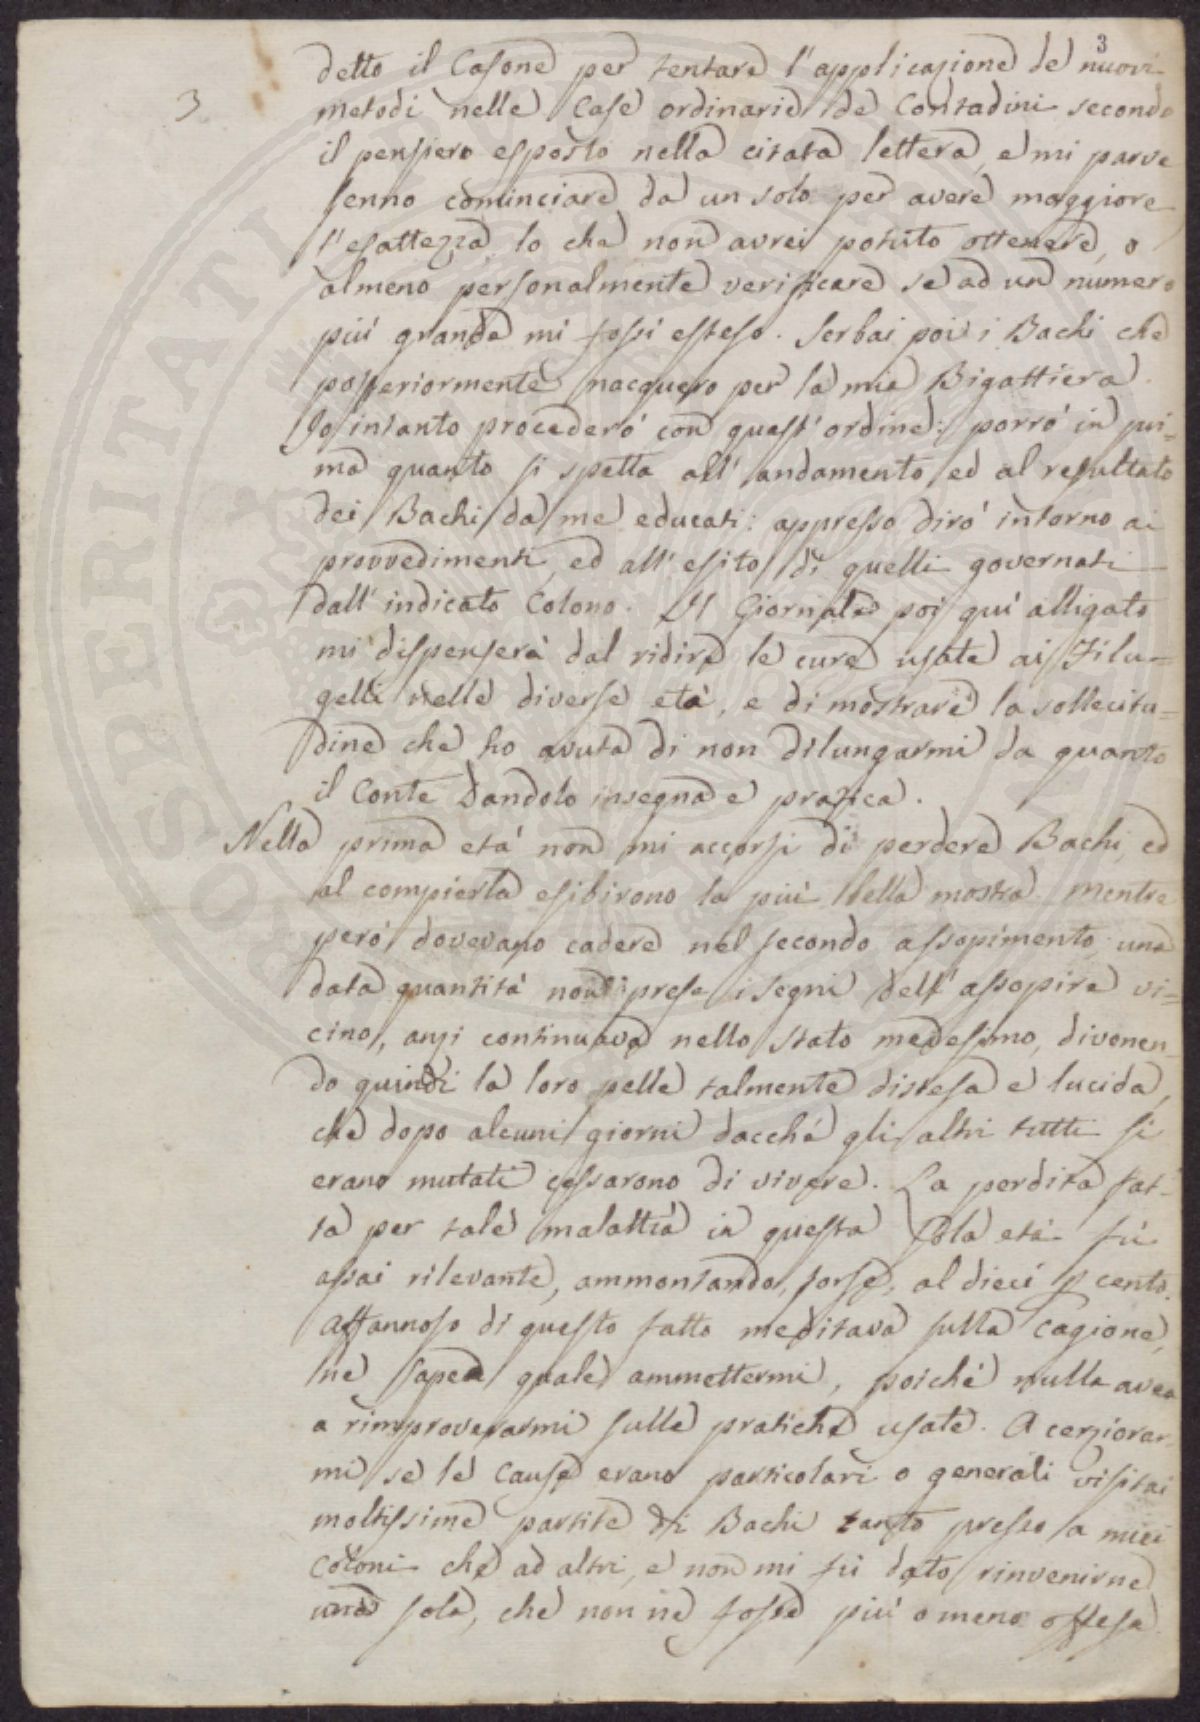 3
3
detto il Casone per tentare l'applicazione de nuovi
metodi nelle Case ordinarie de Contadini secondo
il pensiero esposto nella citata lettera, e mi parve
senno cominciare da un solo per avere maggiore
l'esattezza, lo che non avrei potuto ottenere, o
almeno personalmente verificare se ad un numero
piú grande mi fossi esteso. Serbai poi i Bachi che
posteriormente nacquero per la mia Bigattiera.
Io intanto procederó con quest'ordine: porró in pri=
ma quanto si spetta all'andamento ed al resultato
dei Bachi da me educati: appresso diró intorno ai
provvedimenti, ed all'esito di quelli governati
dall'indicato Colono. Il Giornale poi quí alligato
mi dispenserá dal ridire le cure usate ai Filu=
gelli nelle diverse etá, e di mostrare la sollecitu=
dine che ho avuta di non dilungarmi da quanto
il Conte Dandolo insegna e pratica.
Nella prima etá non mi accorsi di perdere Bachi, ed
al compierla esibirono la piú bella mostra. Mentre
peró dovevano cadere nel secondo assopimento, una
data quantitá non prese i segni dell'assopire vi=
cino, anzi continuava nello stato medesimo, divenen=
do quindi la loro pelle talmente distesa e lucida,
che dopo alcuni giorni dacché gli altri tutti si
erano mutati cessarono di vivere. La perdita fat=
ta per tale malattia in questa sola etá fú
assai rilevante, ammontando, forse, al dieci p cento.
Affannoso di questo fatto meditava sulla cagione,
ne sapea quale ammettermi, poiché nulla avea
a rimproverarmi sulle pratiche usate. A cerziorar=
mi se le cause erano particolari o generali visitai
moltissime partite di Bachi tanto presso a miei
Coloni che ad altri, e non mi fú dato rinvenirne
una sola, che non ne fosse piú o meno offesa.